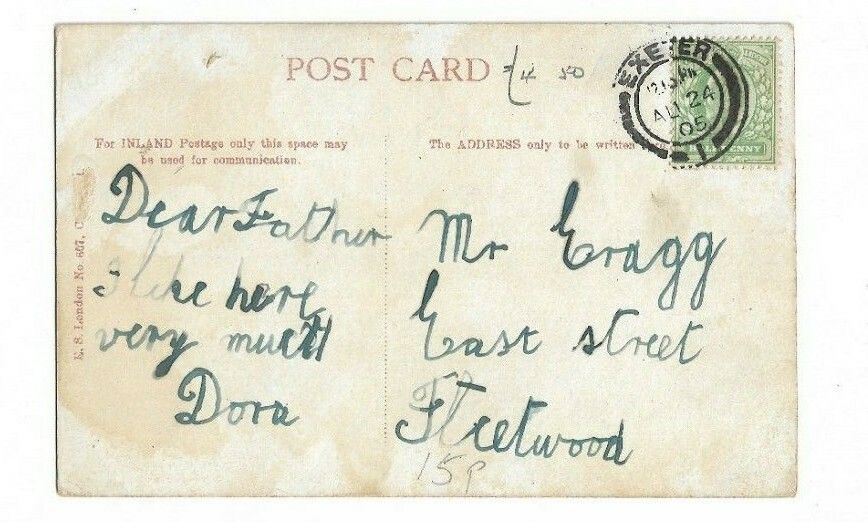 POST CARD
£4 50
EXETER
12.15 PM
AU 24
05
1
For INLAND Postage only this space may
be used for communication.
The ADDRESS only to be written
HALFPENNY
E. S. London No. 667,
Dear Father
I like here
very much
Dora
Mr Cragg
East street
Fleetwood
15p